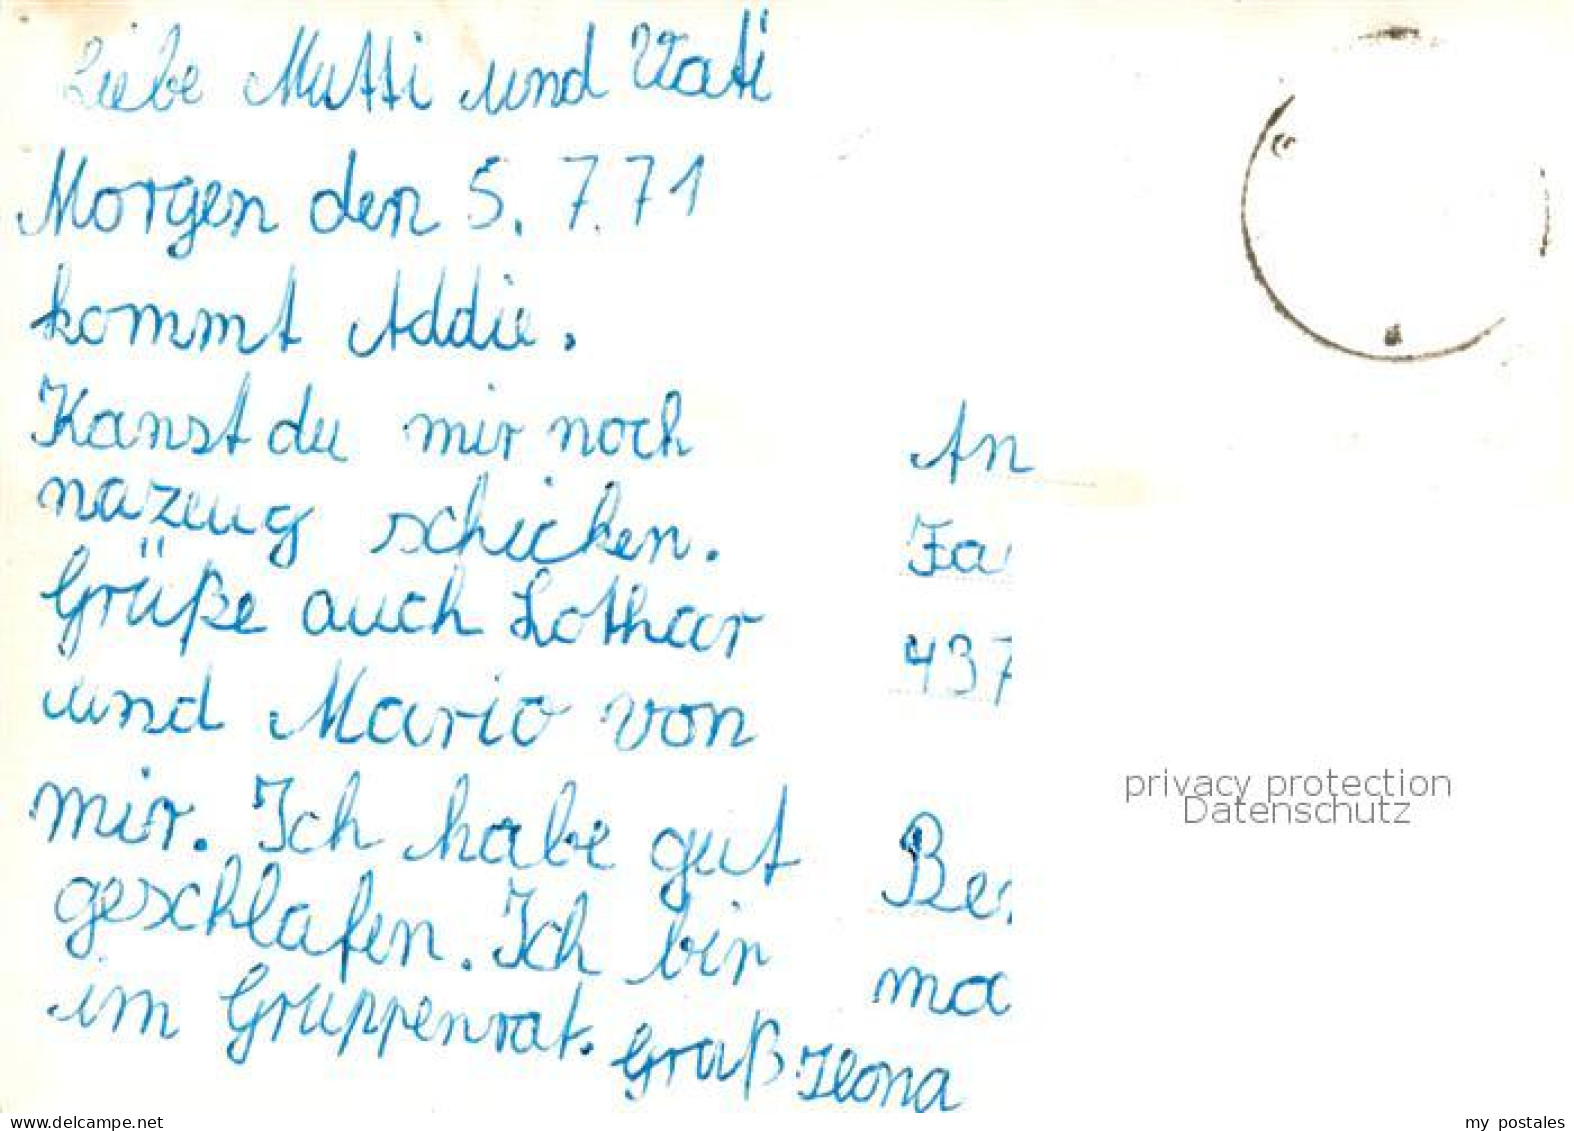 Liebe Mutti und Vati
Morgen den 5. 7. 71
kommt Addie.
Kanst du mir noch
nazeug schicken.
Grüße auch Lothar
und Mario von
mir. Ich habe gut
geschlafen. Ich bin
im Gruppenrat. Gruß Ilona
An
Fa
437
Be
ma
privacy protection
Datenschutz
delcampe.net
my postales